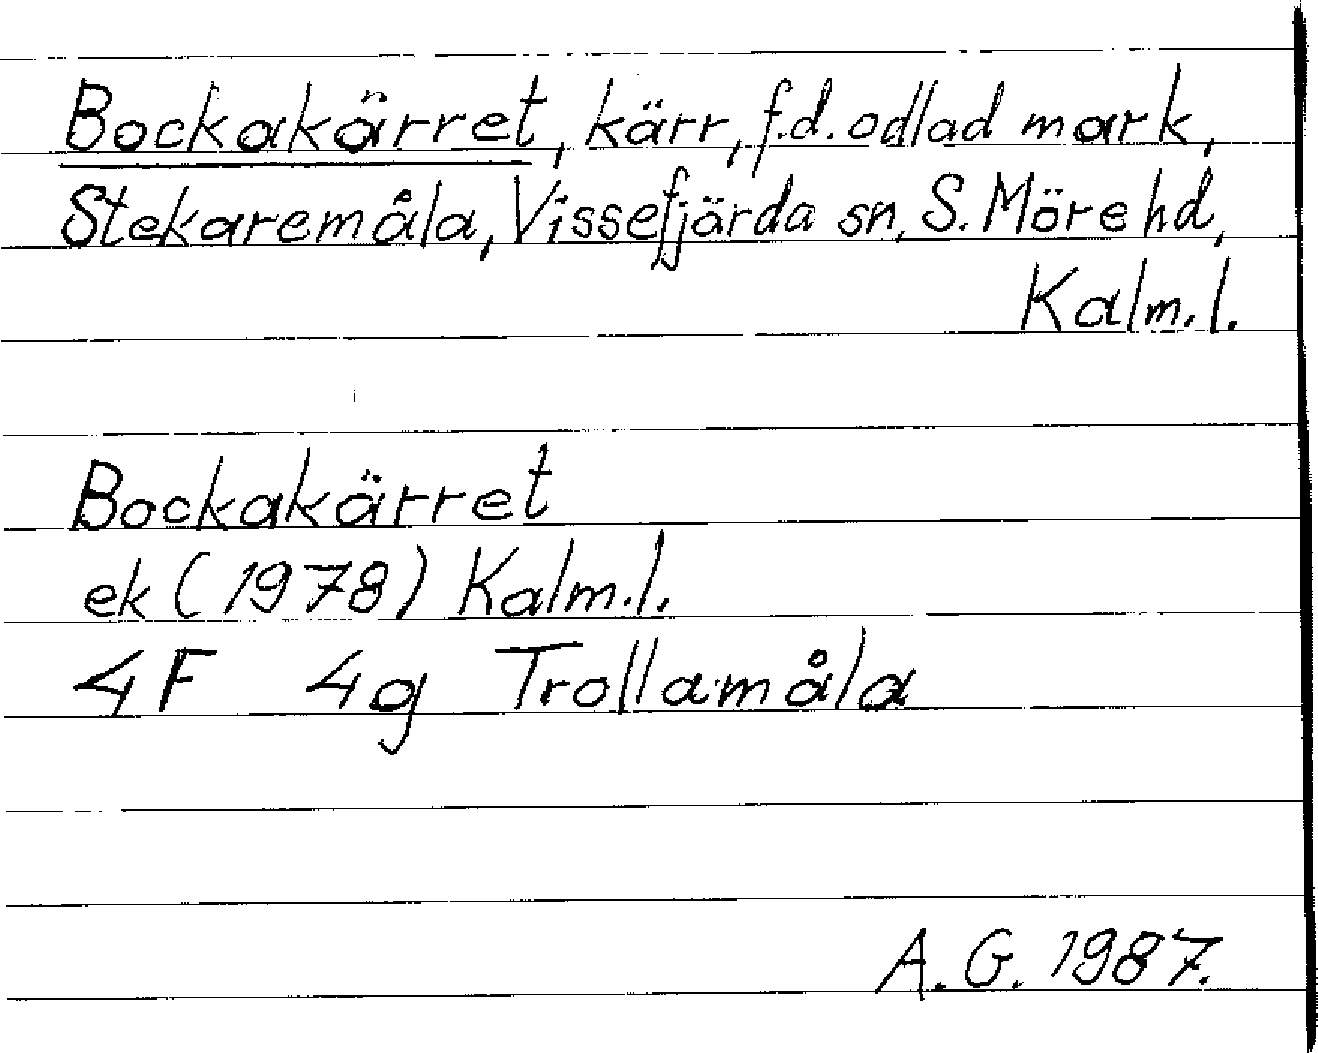 Bockakärret, kärr, f.d. odlad mark,
Stekaremåla, Vissefjärda sn, S. Möre hd,
Kalm. l.
Bockakärret
ek (1978) Kalm. l.
4F 4g Trollamåla
A. G. 1987.